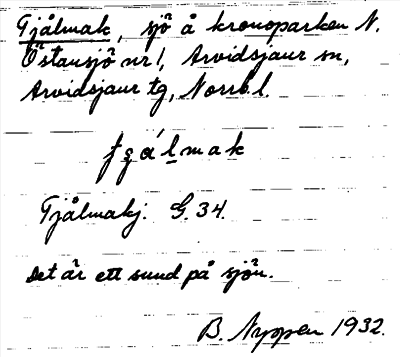 Tjålmak, sjö å kronoparken N.
Östansjö nr 1, Arvidsjaur sn,
Arvidsjaur tg, Norrb l.
Tjålmakj. G. 34.
Det är ett sund på sjön.
B. Nyppen 1932.